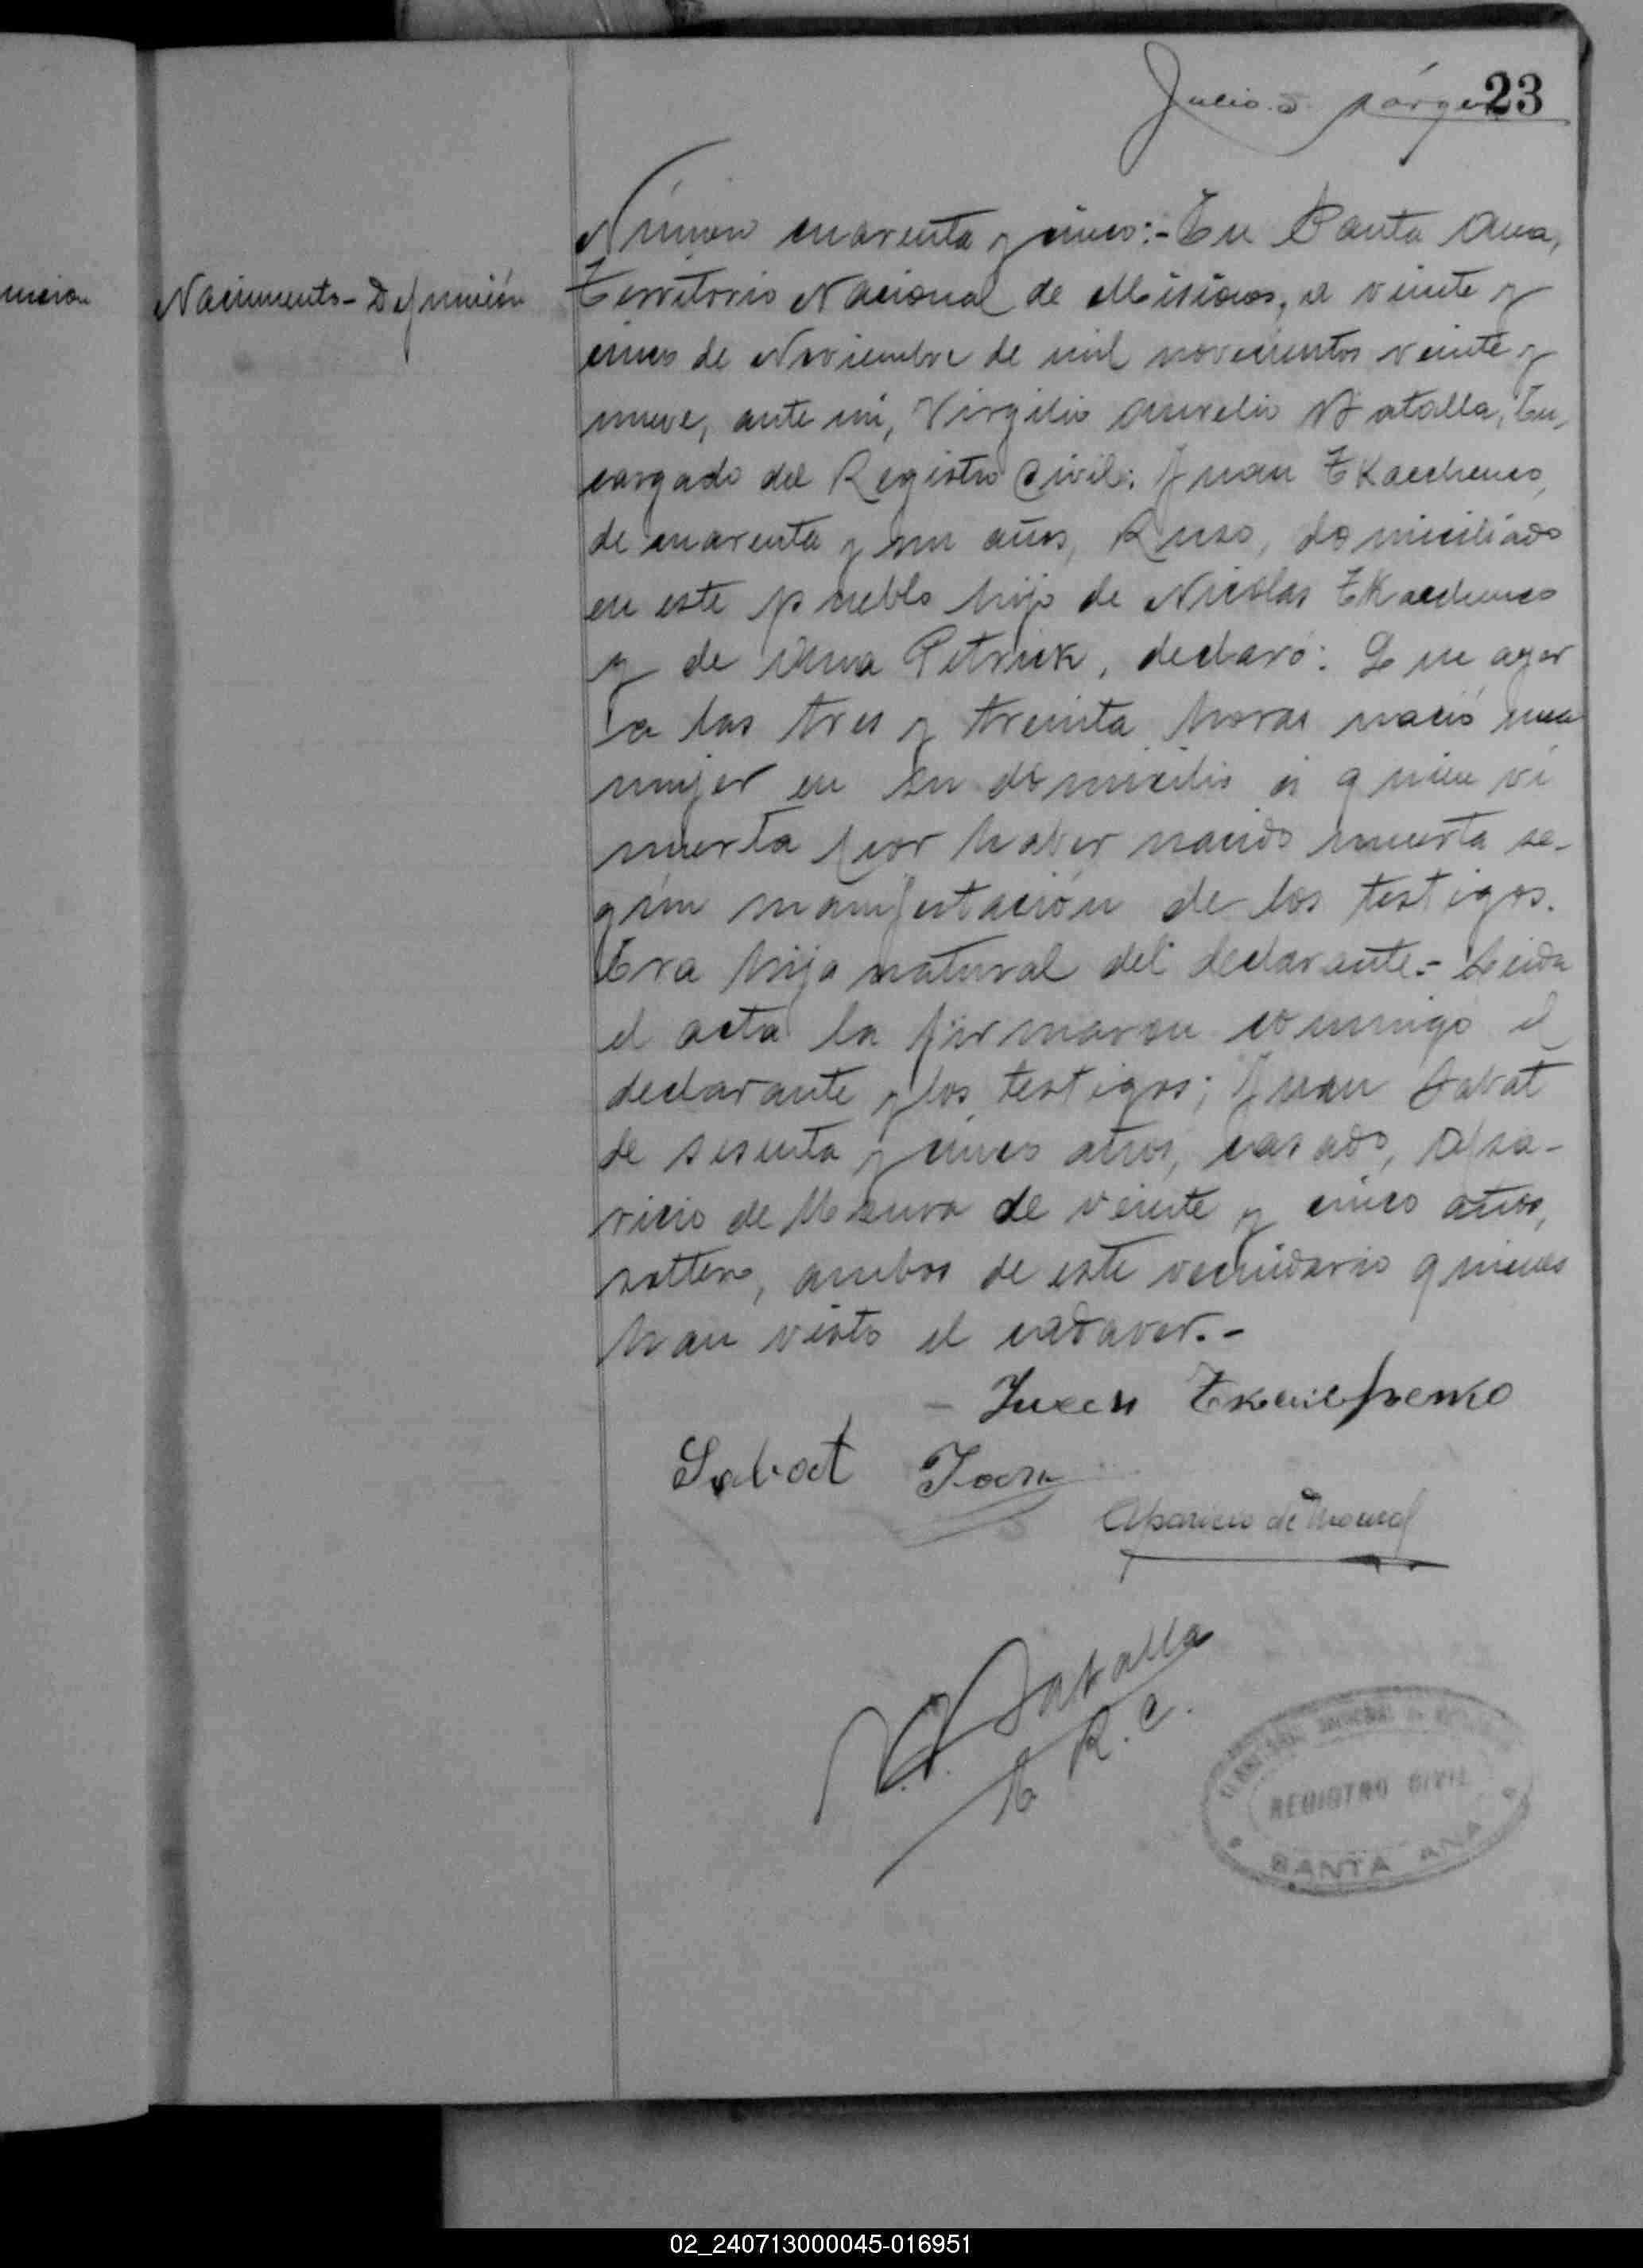 Julio D.
23
Nacimiento - Defunción
Número cuarenta y cinco:- En Santa Ana,
Territorio Nacional de Misiones, a veinte y
cinco de Noviembre de mil novecientos veinte y
nueve, ante mi, Virgilio Aurelio Batalla, En-
cargado del Registro Civil: Juan Tkaechenco,
de cuarenta y un años, Ruso, domiciliado
en este pueblo hijo de Nicolas Tkaechenco
y de Anna Petruk, declaró: Que ayer
a las tres y treinta horas nació una
mujer en su domicilio á quien ví
muerta por haber nacido muerta se-
gún manifestación de los testigos.
Era hija natural del declarante.- Leida
el acta la firmaron conmigo el
declarante y los testigos; Juan Sabat
de sesenta y cinco años, casado, Apa-
ricio de Moura de veinte y cinco años,
soltero, ambos de este vecindario quienes
han visto el cadaver.-
Juan
Sabat Joan
Aparicio de Moura
V. A. Batalla
E. R. C.
TERRITORIO NACIONAL DE MISIONES
REGISTRO CIVIL
SANTA ANA
02_240713000045-016951